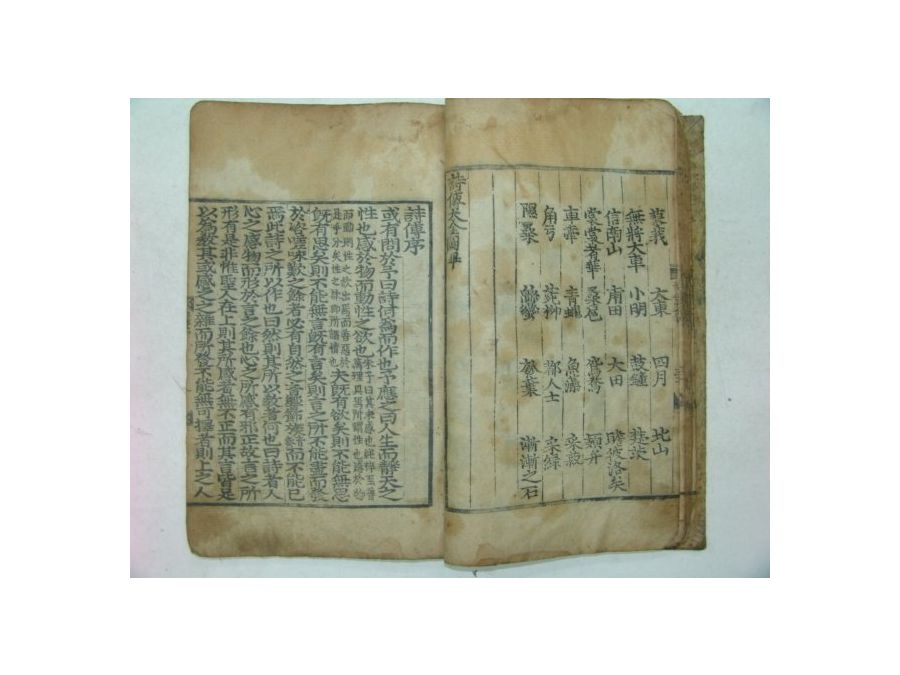 蓼莪 大東 四月 北山
無將大車 小明 鼓鍾 楚茨
信南山 甫田 大田 瞻彼洛矣
裳裳者華 桑扈 鴛鴦 頍弁
車舝 青蠅 魚藻 采菽
角弓 菀柳 都人士 采綠
隰桑 緜蠻 瓠葉 漸漸之石
詩傳大全圖畢
詩傳序
或有問於予曰詩何爲而作也予應之曰人生而靜天之
性也感於物而動性之欲也朱子曰其未感也純粹至善萬理具焉所謂性也感於物而動則性之欲出焉而善惡於是乎分矣性之欲即所謂情也夫既有欲矣則不能無思
既有思矣則不能無言既有言矣則言之所不能盡而發
於咨嗟咏歎之餘者必有自然之音響節族音奏而不能已
焉此詩之所以作也曰然則其所以教者何也曰詩者人
心之感物而形於言之餘也心之所感有邪正故言之所
形有是非惟聖人在上則其所感者無不正而其言皆足
以爲教其或感之之雜而所發不能無可擇者則上之人